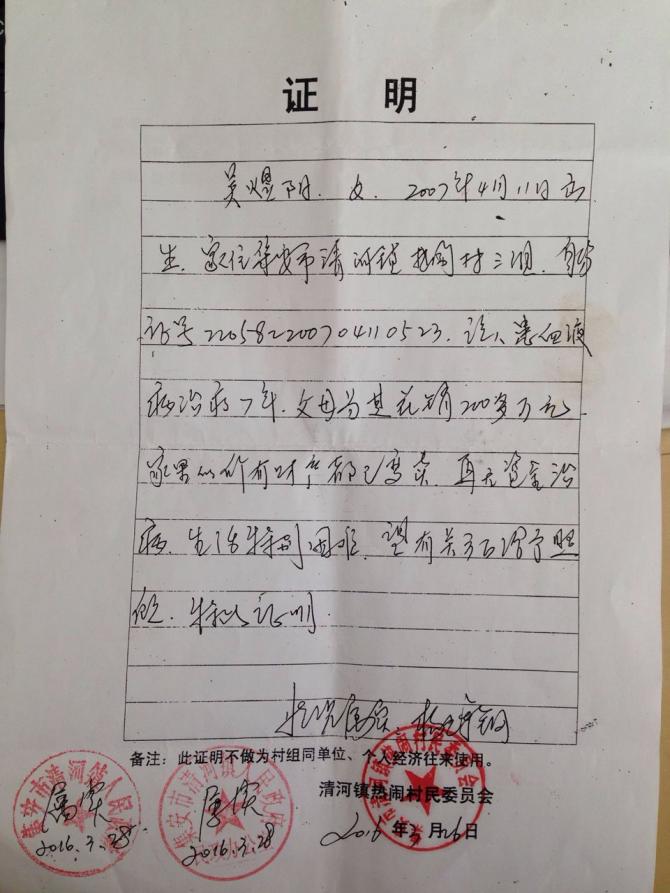 证 明
吴煜阳、女、2007年4月11日出
生、家住集安市清河镇热闹村三组、身份
证号220582200704110523、该人患血液
病治病7年、父母为其花销200多万元
家里的所有财产都已变卖、再无资金治
病、生活特别困难、望有关方面给予照
顾、特此证明
情况属实
备注：此证明不做为村组同单位、个人经济往来使用。
清河镇热闹村民委员会
2016年3月26日
集安市清河镇人民政府
属实
2016.3.28
集安市清河镇人民政府
属实
2016.3.28
集安市清河镇热闹村民委员会